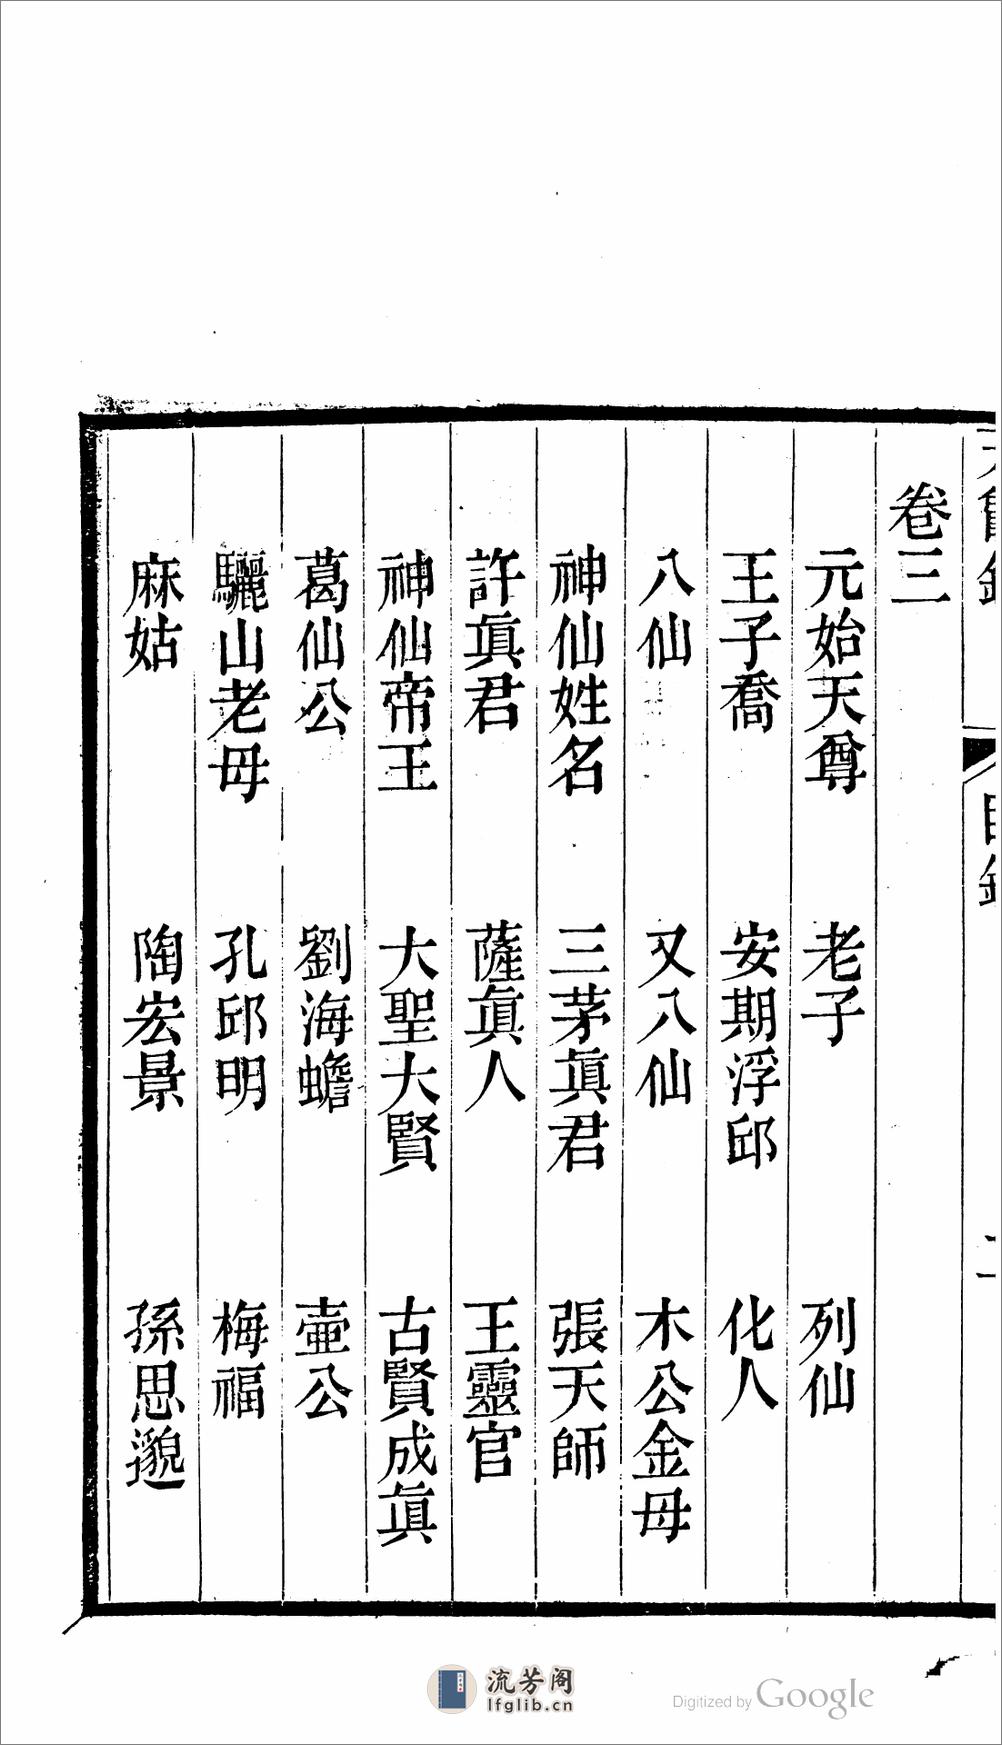 卷三
元始天尊　老子　列仙
王子喬　安期浮邱　化人
八仙　又八仙　木公金母
神仙姓名　三茅眞君　張天師
許眞君　薩眞人　王靈官
神仙帝王　大聖大賢　古賢成眞
葛仙公　劉海蟾　壷公
驪山老母　孔邱明　梅福
麻姑　陶宏景　孫思邈
流芳阁
lfglib.cn
Digitized by Google